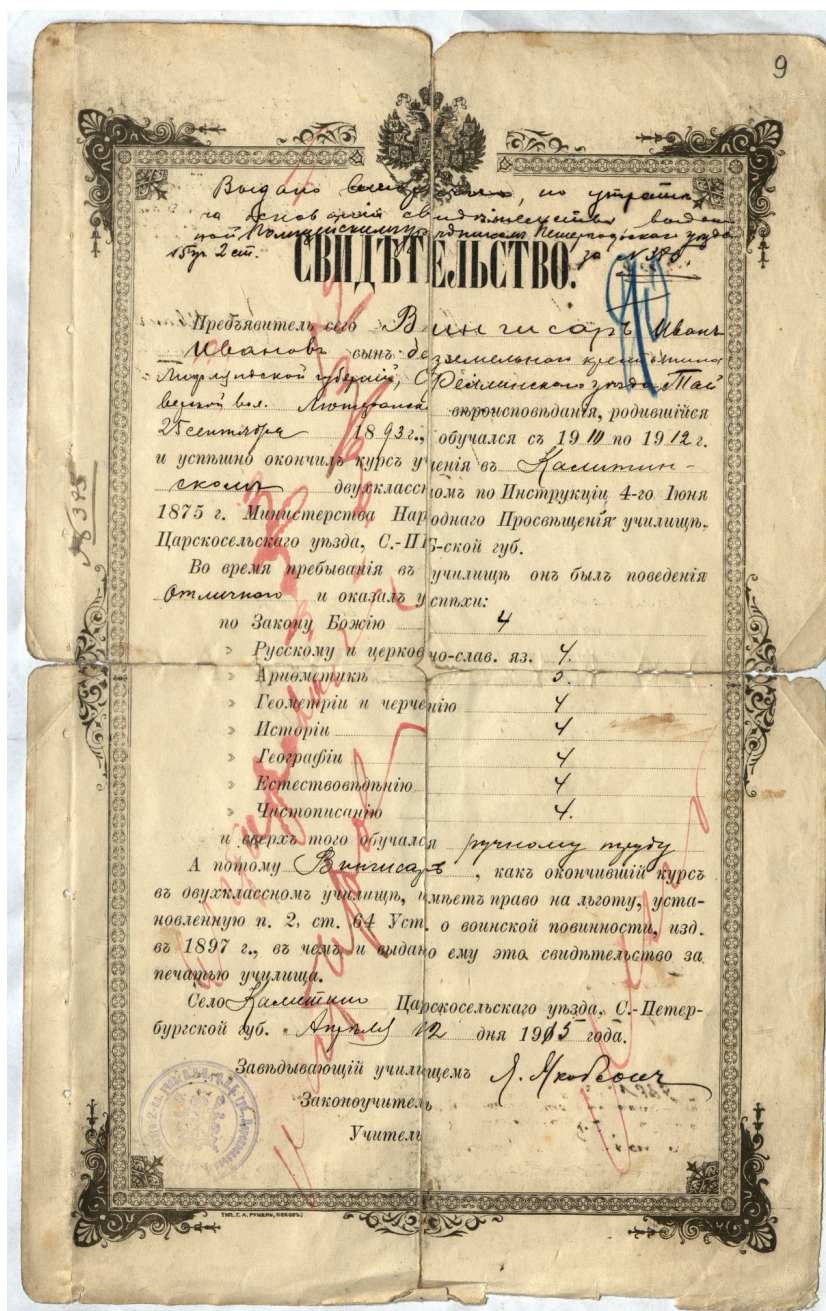 9
Выдано вторично, по утрате
на основании свидѣтельства выдан
ной Полицейскимъ урядникомъ Петергофскаго уѣзда
15 уч. 2 ст. за № 380.
СВИДѢТЕЛЬСТВО.
Предъявитель сего Вингисаръ Иванъ
Ивановъ сынъ безземельнаго крестьянина
Лифляндской губерніи, Феллинскаго уѣзда Тай
верской вол. Лютеранска вѣроисповѣданія, родившійся
25 сентября 1893 г., обучался съ 1910 по 1912 г.
и успѣшно окончилъ курсъ ученія въ Калитин-
скомъ двухклассномъ по Инструкціи 4-го Іюня
1875 г. Министерства Народнаго Просвѣщенія училищѣ,
Царскосельскаго уѣзда, С.-ПБ-ской губ.
Во время пребыванія въ училищѣ онъ былъ поведенія
отличнаго и оказалъ успѣхи:
по Закону Божію 4
» Русскому и церковно-слав. яз. 4.
» Ариѳметикѣ 5.
» Геометріи и черченію 4
» Исторіи 4
» Географіи 4
» Естествовѣдѣнію 4
» Чистописанію 4.
и сверхъ того обучался ручному труду
А потому Вингисаръ, какъ окончившій курсъ
въ двухклассномъ училищѣ, имѣетъ право на льготу, уста-
новленную п. 2, ст. 64 Уст. о воинской повинности, изд.
въ 1897 г., въ чемъ и выдано ему это свидѣтельство за
печатью училища.
Село Калитино Царскосельскаго уѣзда, С.-Петер-
бургской губ. Апрѣля 12 дня 1915 года.
Завѣдывающій училищемъ Я. Якобсонъ
Законоучитель
Учитель
ТИП. С. А. РУМЕЛЬ, ПСКОВЪ.
№ 8375